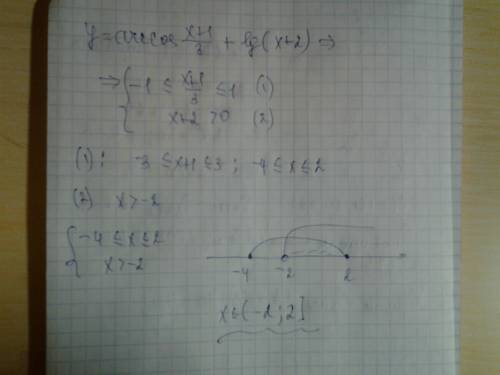 y = arccos (x+1)/3 + lg(x+2) ⇒
⇒ { -1 ≤ (x+1)/3 ≤ 1 (1)
{ x+2 > 0 (2)
(1): -3 ≤ x+1 ≤ 3 ; -4 ≤ x ≤ 2
(2) x > -2
{ -4 ≤ x ≤ 2
{ x > -2
-4 -2 2
x ∈ (-2 ; 2]